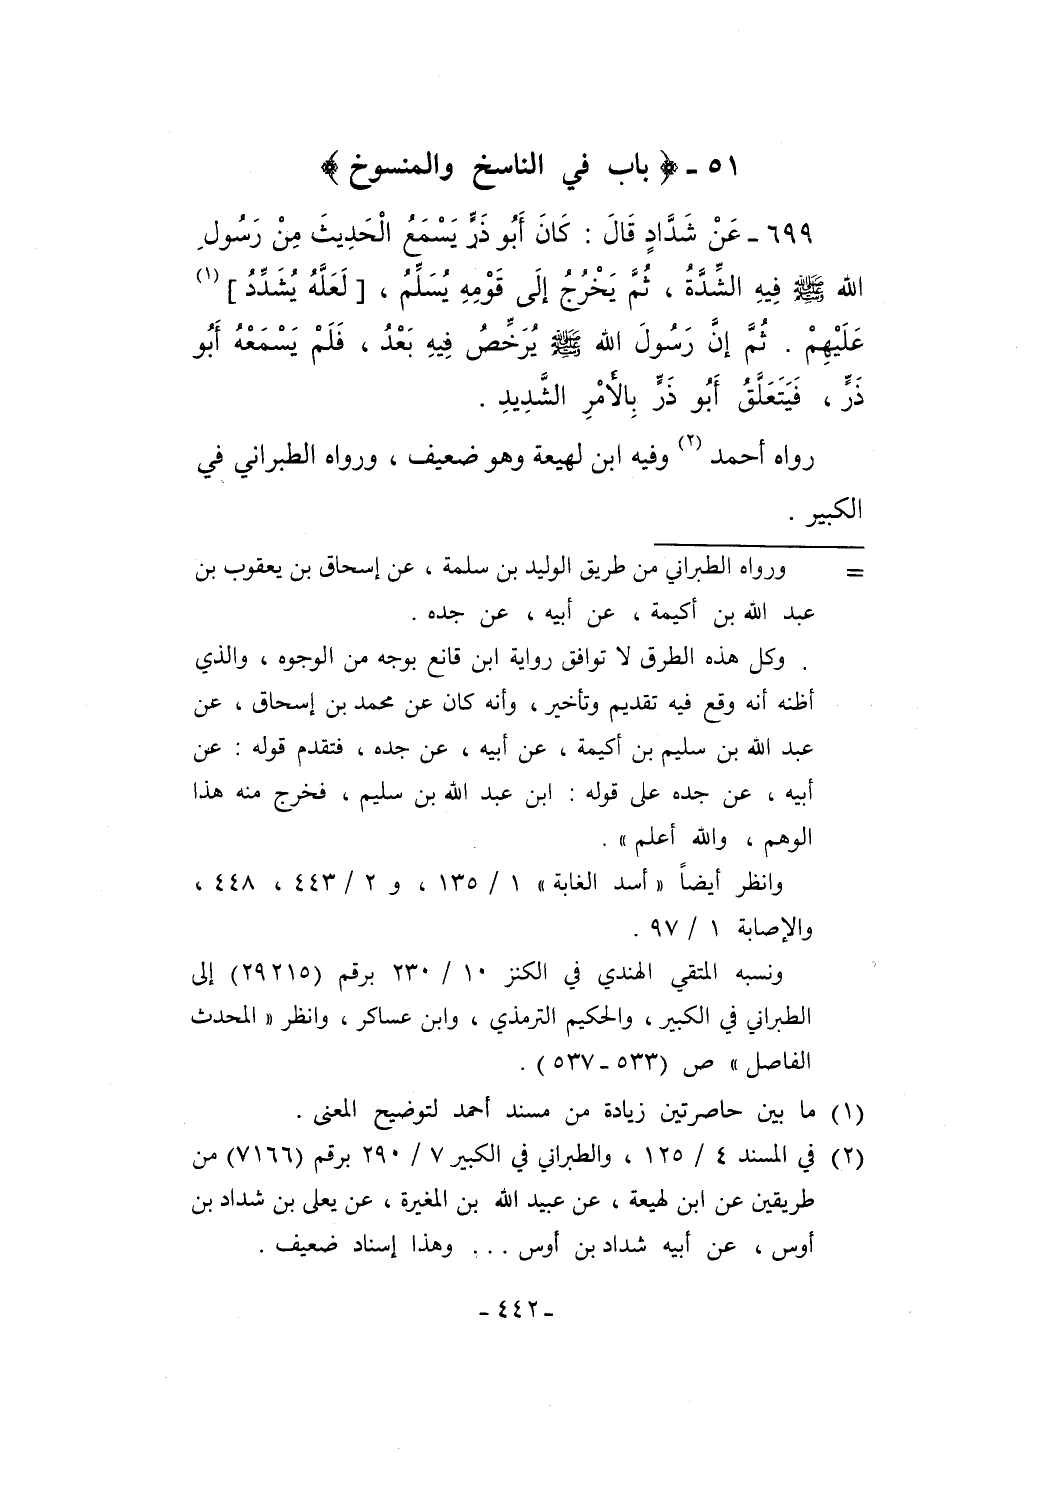 ٥١ - ﴿ باب في الناسخ والمنسوخ ﴾
٦٩٩ - عَنْ شَدَّادٍ قَالَ : كَانَ أَبُو ذَرٍّ يَسْمَعُ الْحَدِيثَ مِنْ رَسُولِ
الله ﷺ فِيهِ الشِّدَّةُ ، ثُمَّ يَخْرُجُ إِلَى قَوْمِهِ يُسَلِّمُ ، [ لَعَلَّهُ يُشَدِّدُ ] (١)
عَلَيْهِمْ . ثُمَّ إِنَّ رَسُولَ الله ﷺ يُرَخِّصُ فِيهِ بَعْدُ ، فَلَمْ يَسْمَعْهُ أَبُو
ذَرٍّ ، فَيَتَعَلَّقُ أَبُو ذَرٍّ بِالأَمْرِ الشَّدِيدِ .
رواه أحمد (٢) وفيه ابن لهيعة وهو ضعيف ، ورواه الطبراني في
الكبير .
= ورواه الطبراني من طريق الوليد بن سلمة ، عن إسحاق بن يعقوب بن
عبد الله بن أكيمة ، عن أبيه ، عن جده .
. وكل هذه الطرق لا توافق رواية ابن قانع بوجه من الوجوه ، والذي
أظنه أنه وقع فيه تقديم وتأخير ، وأنه كان عن محمد بن إسحاق ، عن
عبد الله بن سليم بن أكيمة ، عن أبيه ، عن جده ، فتقدم قوله : عن
أبيه ، عن جده على قوله : ابن عبد الله بن سليم ، فخرج منه هذا
الوهم ، والله أعلم » .
وانظر أيضاً « أسد الغابة » ١ / ١٣٥ ، و ٢ / ٤٤٣ ، ٤٤٨ ،
والإصابة ١ / ٩٧ .
ونسبه المتقي الهندي في الكنز ١٠ / ٢٣٠ برقم (٢٩٢١٥) إلى
الطبراني في الكبير ، والحكيم الترمذي ، وابن عساكر ، وانظر « المحدث
الفاصل » ص (٥٣٣ - ٥٣٧) .
(١) ما بين حاصرتين زيادة من مسند أحمد لتوضيح المعنى .
(٢) في المسند ٤ / ١٢٥ ، والطبراني في الكبير ٧ / ٢٩٠ برقم (٧١٦٦) من
طريقين عن ابن لهيعة ، عن عبيد الله بن المغيرة ، عن يعلى بن شداد بن
أوس ، عن أبيه شداد بن أوس ... وهذا إسناد ضعيف .
- ٤٤٢ -